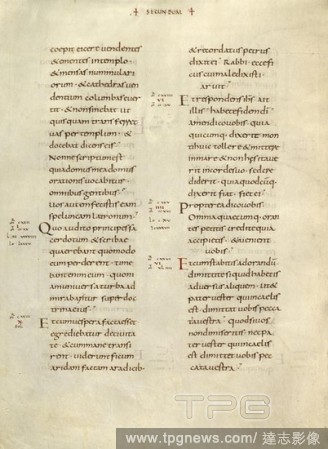 SEGUNDUM
coepit eicere uendentes
& ementes intemplo.
& mensas nummulari
orum. & cathedras uen
dentium columbas euer
tit. & non sinebat ut
quisquam transferret
uas per templum. &
docebat dicens eis.
Nonne scriptum est
quia domus mea domus
orationis uocabitur
omnibus gentibus.
uos autem fecistis eam
speluncam latronum.
Quo audito principes sa
cerdotum & scribae
quaerebant quomodo
eum perderent. time
bant enim eum. quoniam
uniuersa turba ad
mirabatur super doc
trina eius.
Et cum uespera facta esset
egrediebatur deciuita
te. & cum mane transi
rent. uiderunt ficum
aridam factam aradicib.
& recordatus petrus
dixit ei. Rabbi. ecce fi
cus cui maledixisti
aruit.
Et respondens ihs. ait
illis. habete fidem di.
amen dico uobis. quia
quicumq. dixerit mon
ti huic tollere & mitte in
mare & non hesitaue
rit in corde suo. sed cre
diderit. quia quodcumq.
dixerit fiat. fiet ei.
Propterea dico uobis.
Omnia quaecumq. oran
tes petitis credite quia
accipietis. & uenient
uobis.
Et cum stabitis adorandum.
dimittite siquid habetis
aduersus aliquem. ut &
pater uester qui in caelis
est. dimittat uobis pecca
ta uestra. quod si uos
non dimiseritis. nec pa
ter uester qui in caelis
est. dimittet uobis pec
cata uestra.
TPG
www.tpgnews.com/達志影像